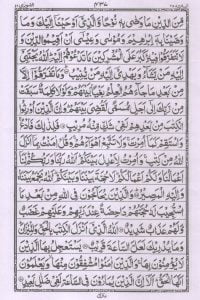 ٤٣٧
مِّنَ الدِّيْنِ مَا وَصّٰى بِهٖ نُوْحًا وَّالَّذِيْٓ اَوْحَيْنَآ اِلَيْكَ وَمَا
وَصَّيْنَا بِهٖٓ اِبْرٰهِيْمَ وَمُوْسٰى وَعِيْسٰٓى اَنْ اَقِيْمُوا الدِّيْنَ وَ
لَا تَتَفَرَّقُوْا فِيْهِ ؕ كَبُرَ عَلَى الْمُشْرِكِيْنَ مَا تَدْعُوْهُمْ اِلَيْهِ ؕ اَللّٰهُ يَجْتَبِيْٓ
اِلَيْهِ مَنْ يَّشَآءُ وَيَهْدِيْٓ اِلَيْهِ مَنْ يُّنِيْبُ ۝ وَمَا تَفَرَّقُوْٓا اِلَّا
مِنْۢ بَعْدِ مَا جَآءَهُمُ الْعِلْمُ بَغْيًاۢ بَيْنَهُمْ ؕ وَلَوْلَا كَلِمَةٌ سَبَقَتْ
مِنْ رَّبِّكَ اِلٰٓى اَجَلٍ مُّسَمًّى لَّقُضِيَ بَيْنَهُمْ ؕ وَاِنَّ الَّذِيْنَ اُوْرِثُوا
الْكِتٰبَ مِنْۢ بَعْدِهِمْ لَفِيْ شَكٍّ مِّنْهُ مُرِيْبٍ ۝ فَلِذٰلِكَ فَادْعُ ۚ
وَاسْتَقِمْ كَمَآ اُمِرْتَ ۚ وَلَا تَتَّبِعْ اَهْوَآءَهُمْ ۚ وَقُلْ اٰمَنْتُ بِمَآ اَنْزَلَ
اللّٰهُ مِنْ كِتٰبٍ ۚ وَاُمِرْتُ لِاَعْدِلَ بَيْنَكُمْ ؕ اَللّٰهُ رَبُّنَا وَرَبُّكُمْ ؕ لَنَآ
اَعْمَالُنَا وَلَكُمْ اَعْمَالُكُمْ ؕ لَا حُجَّةَ بَيْنَنَا وَبَيْنَكُمْ ؕ اَللّٰهُ يَجْمَعُ بَيْنَنَا ۚ
وَاِلَيْهِ الْمَصِيْرُ ۝ وَالَّذِيْنَ يُحَآجُّوْنَ فِي اللّٰهِ مِنْۢ بَعْدِ مَا
اسْتُجِيْبَ لَهٗ حُجَّتُهُمْ دَاحِضَةٌ عِنْدَ رَبِّهِمْ وَعَلَيْهِمْ غَضَبٌ
وَّلَهُمْ عَذَابٌ شَدِيْدٌ ۝ اَللّٰهُ الَّذِيْٓ اَنْزَلَ الْكِتٰبَ بِالْحَقِّ وَالْمِيْزَانَ ؕ
وَمَا يُدْرِيْكَ لَعَلَّ السَّاعَةَ قَرِيْبٌ ۝ يَسْتَعْجِلُ بِهَا الَّذِيْنَ
لَا يُؤْمِنُوْنَ بِهَا ۚ وَالَّذِيْنَ اٰمَنُوْا مُشْفِقُوْنَ مِنْهَا ۙ وَيَعْلَمُوْنَ
اَنَّهَا الْحَقُّ ؕ اَلَآ اِنَّ الَّذِيْنَ يُمَارُوْنَ فِي السَّاعَةِ لَفِيْ ضَلٰلٍۢ بَعِيْدٍ ۝